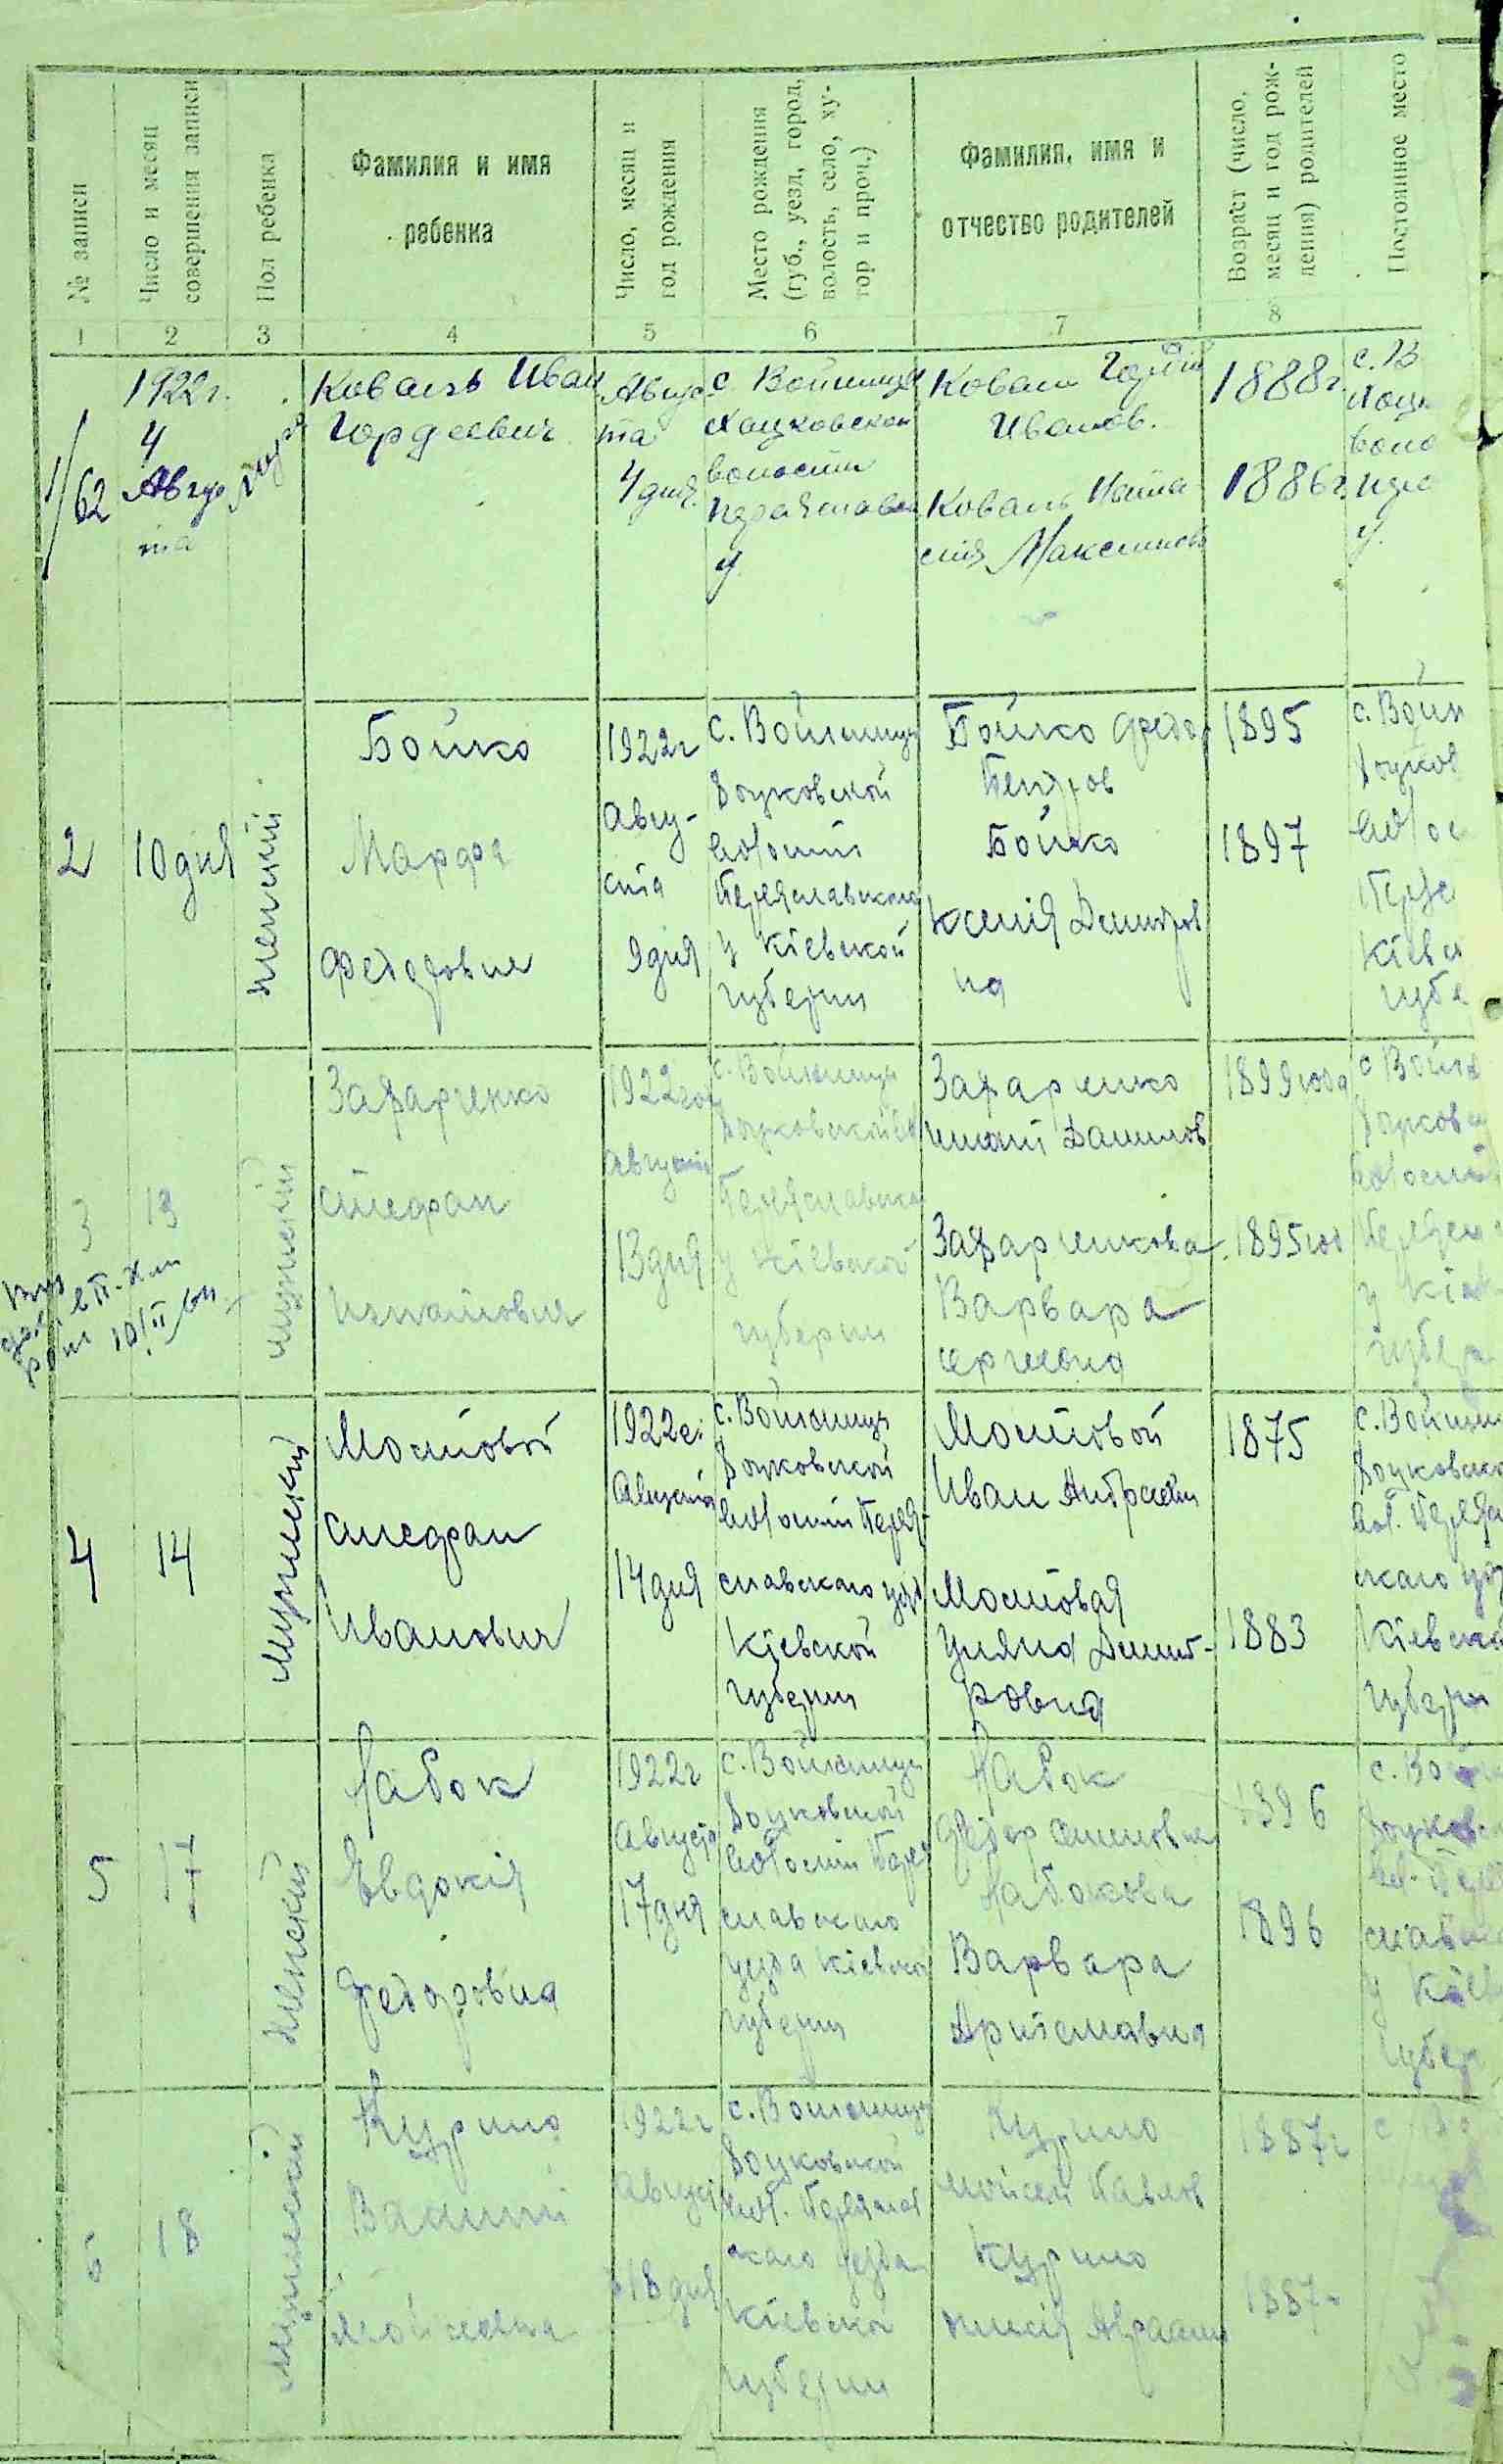 № записи
Число и месяц
совершения записи
Пол ребенка
Фамилия и имя
ребенка
Число, месяц и
год рождения
Место рождения
(губ., уезд, город,
волость, село, ху-
тор и проч.)
Фамилия, имя и
отчество родителей
Возраст (число,
месяц и год рож-
дения) родителей
Постоянное место
1
2
3
4
5
6
7
8
1/62
1922г.
4
Авгус
та
Коваль Иван
Гордеевич
Авгус
та
4 дня.
с Войтовцы
Хоцковской
волости
Переяслав
у.
Коваль
Иванов.
Коваль
Максимов
1888г.
1886г.
с. В
Хоцк
воло
у.
2
10 дня
женский
Бойко
Марфа
Федоровна
1922г
Авгу-
ста
9 дня
с. Войтовцы
Хоцковской
волости
Переяславского
у Кіевской
губерни
Бойко Федор
Петров
Бойко
Ксенія Дмитров
на
1895
1897
с. Войт
Хоцков
волос
Перея
Кіевс
губе
3
13
мужскій
Захарченко
Стефан
Игнатович
1922год
Августа
13 дня
с. Войтовцы
Хоцковской во
Переяславска
у Кіевской
губерни
Захарченко
Игнатій Данилов
Захарченкова
Варвара
Сергеевна
1899 года
1895 го
с Войтв
Хоцковск
волости
Переясл
у Кіев
губерн
4
14
Мужский
Мостовой
Стефан
Иванович
1922г.
Августа
14 дня
с. Войтовцы
Хоцковской
волости Перея-
славскаго уез
Кіевской
губерни
Мостовой
Иван Андреев
Мостовая
Уляна Дмит-
ровна
1875
1883
с. Войтов
Хоцковско
вол. Переясл
скаго уез
Кіевской
губерни
5
17
женский
Набок
Евдокія
Федоровна
1922г
Августа
17 дня
с. Войтовцы
Хоцковской
волости Перея
славскаго
уезда Кіевско
губерни
Набок
Федор Семенович
Набокова
Варвара
Артемавна
1896
1896
с. Во
Хоцков
вол. Пере
славск
у Кіев
губер
6
18
Мужеский
Курило
Василий
Мойсеевич
1922г
Август
18 дня
с. Войтовцы
Хоцковской
вол. Переяслав
скаго уезда
Кіевско
губерни
Курило
Мойсей Павлов
Курило
Авраам
1887г
1887г